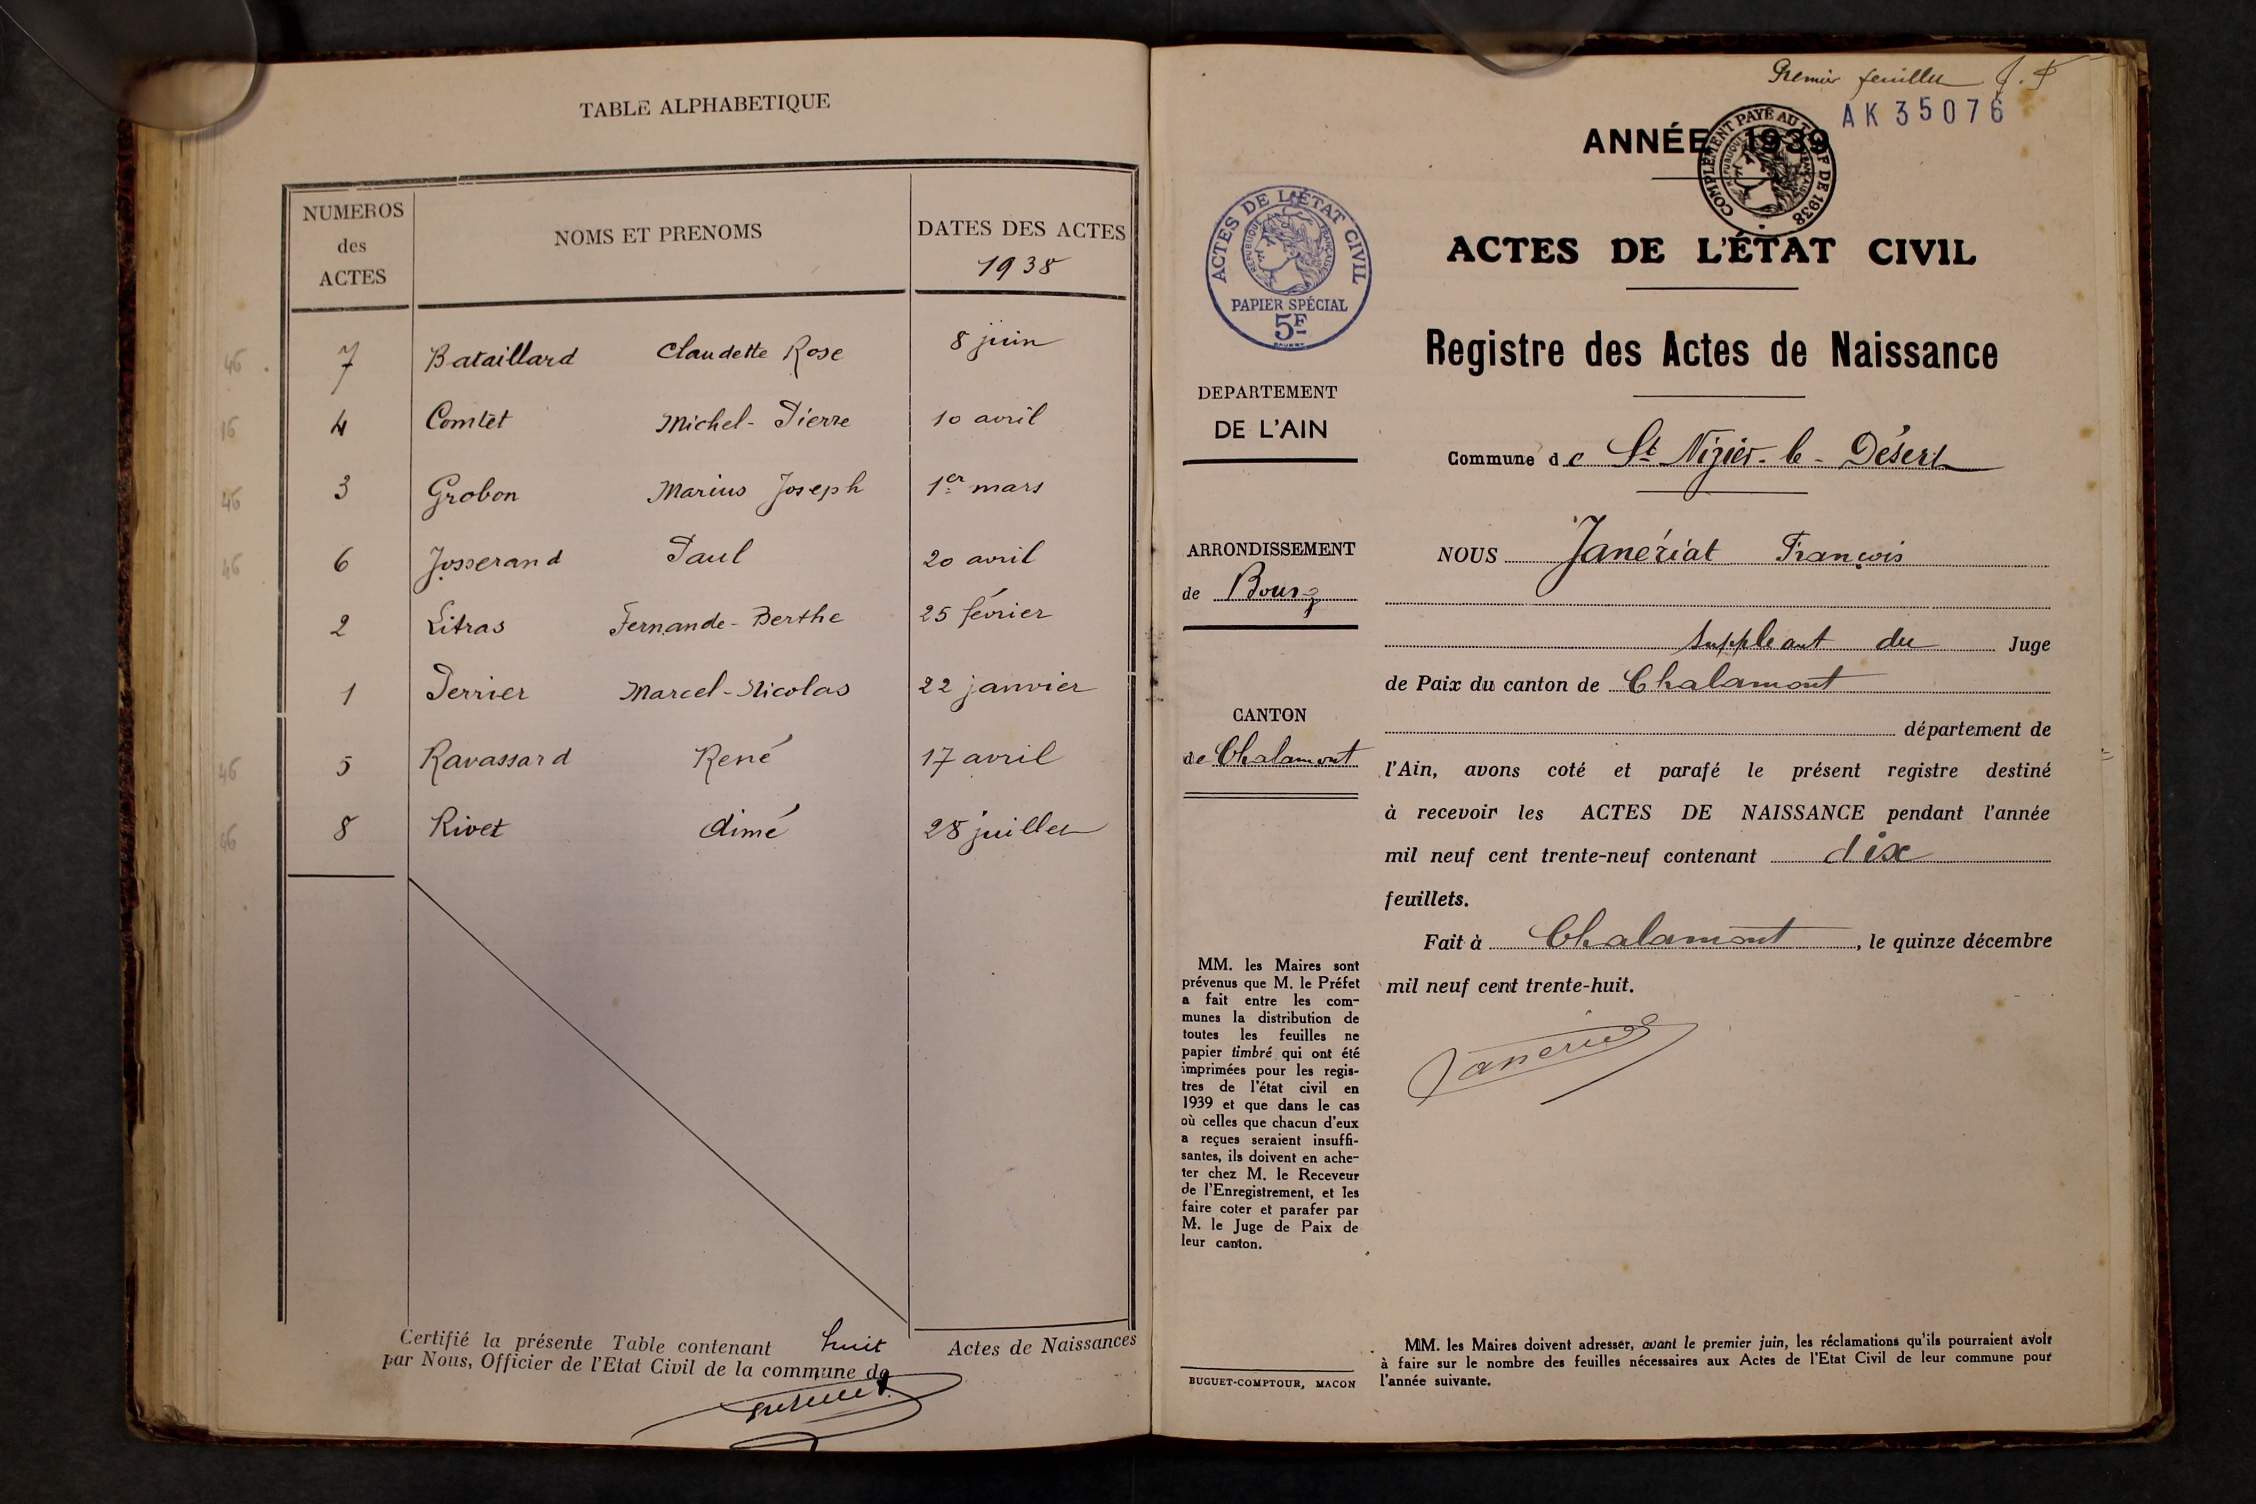 TABLE ALPHABETIQUE
NUMEROS
des
ACTES
NOMS ET PRENOMS
DATES DES ACTES
1938
46 7 Bataillard Claudette Rose 8 juin
16 4 Comtet Michel-Pierre 10 avril
46 3 Grobon Marius Joseph 1er mars
46 6 Josserand Paul 20 avril
2 Litras Fernande-Berthe 25 février
1 Perrier Marcel-Nicolas 22 janvier
46 5 Ravassard René 17 avril
46 8 Rivet Aimé 28 juillet
Certifié la présente Table contenant huit Actes de Naissances
par Nous, Officier de l'Etat Civil de la commune de
Premier feuillet J. F
AK35076
ANNÉE 1939
COMPLÉMENT PAYÉ AU TARIF DE 1938
ACTES DE L'ÉTAT CIVIL
RÉPUBLIQUE FRANÇAISE
PAPIER SPÉCIAL
5F
ACTES DE L'ÉTAT CIVIL
Registre des Actes de Naissance
DEPARTEMENT
DE L'AIN
Commune de St Nizier-le-Désert
ARRONDISSEMENT
de Bourg
CANTON
de Chalamont
NOUS Janériat François
suppléant du Juge
de Paix du canton de Chalamont
département de
l'Ain, avons coté et parafé le présent registre destiné
à recevoir les ACTES DE NAISSANCE pendant l'année
mil neuf cent trente-neuf contenant dix
feuillets.
Fait à Chalamont, le quinze décembre
mil neuf cent trente-huit.
Janériat
MM. les Maires sont
prévenus que M. le Préfet
a fait entre les com-
munes la distribution de
toutes les feuilles ne
papier timbré qui ont été
imprimées pour les regis-
tres de l'état civil en
1939 et que dans le cas
où celles que chacun d'eux
a reçues seraient insuffi-
santes, ils doivent en ache-
ter chez M. le Receveur
de l'Enregistrement, et les
faire coter et parafer par
M. le Juge de Paix de
leur canton.
BUGUET-COMPTOUR, MACON
MM. les Maires doivent adresser, avant le premier juin, les réclamations qu'ils pourraient avoir
à faire sur le nombre des feuilles nécessaires aux Actes de l'Etat Civil de leur commune pour
l'année suivante.